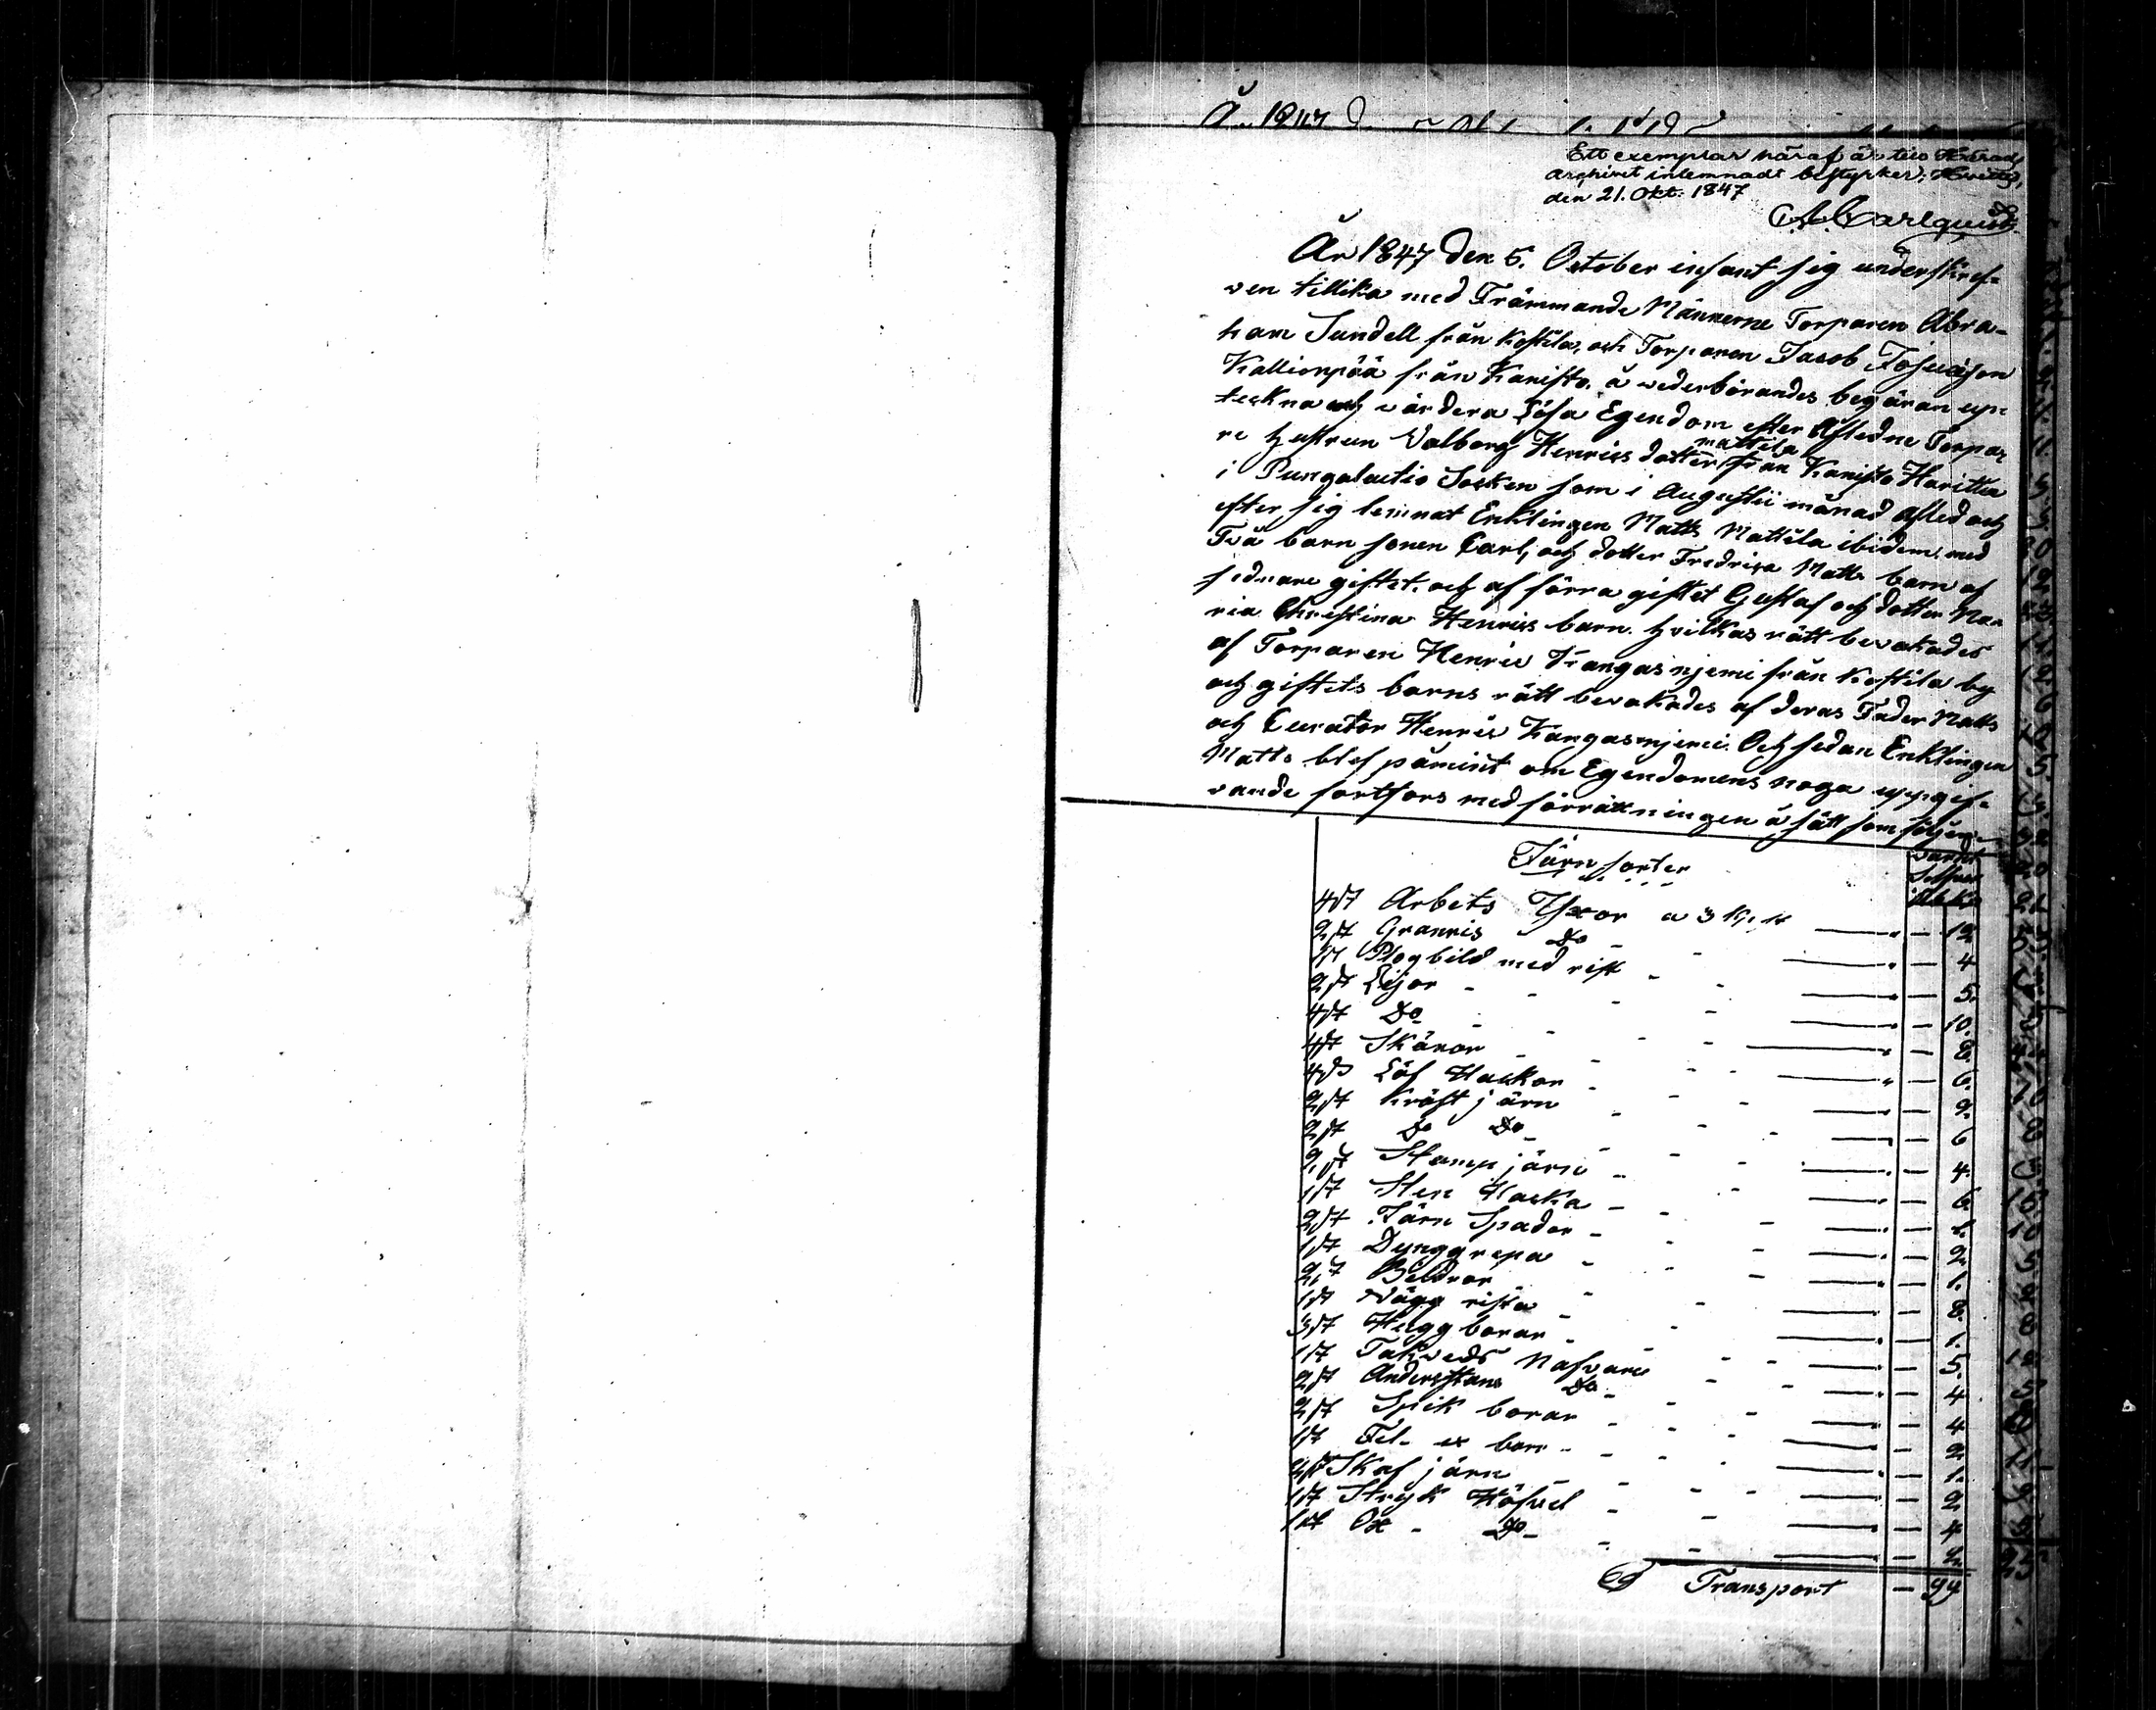 Ett exemplar häraf är till Härads
archivet inlemnadt bestyrker; Hvittis,
den 21. Okt. 1847
Carlquist
År 1847 den 5. October infant sig underskref-
ven tillika med Främmande Männerne Torparen Abra-
ham Sundell från Kostila, och Torparen Jacob Josuason
Kallionpää från Karisto. å wederbörandes begäran upp
teckna och värdera Lösa Egendom efter Afledne Torpa-
re hustrun Valborg Henrics dotter mattila från Karisto Haritu
i Pungalaitio Socken som i Augustii månad afled och
efter sig lemnat Enklingen Matts Mattila ibidem, med
Två barn sonen Carl, och dotter Fredrica Matts barn af
sednare giftet. och af förra giftet Gustaf och dotter Ma-
ria Christina Henrics barn. hvilkas rätt bevakades
af Torparen Henric Kangasnjemi från Kostila by
och giftets barns rätt bevakades af deras Fader Matts
och Curator Henric Kangasnjemi. Och sedan Enklingen
Matts blef påmint om Egendomens noga uppgif-
vande fortfors med förrättningen å sätt som följer
Järn sorter
värdt
Silfver
4 st Arbets Yxor a 3 k. st — 12
2 st Granris Do — 4
1 st Plogbild med rist — 5.
2 st Lijor — 10.
4 st Do — 8.
4 st Skäror — 6.
4 st Löf Hackor — 9.
2 st Kräft järn — 6
2 st Do Do — 4.
2 st Stamp järn — 6.
1 st Sten Hacka
2 st Järn Spador — 2
1 st Dynggrepa — 1.
2 st Beldror — 8.
1 st Vägg rista — 1.
3 st Hugg borar — 5.
1 st Takveds Nafvare — 4
2 st Andersstans Do — 4
2 st Spik borar — 2
1 st — 1.
2 st Skaf järn — 2
1 st Stryk Höfvel — 4
1 st Ox Do
Transport — 99